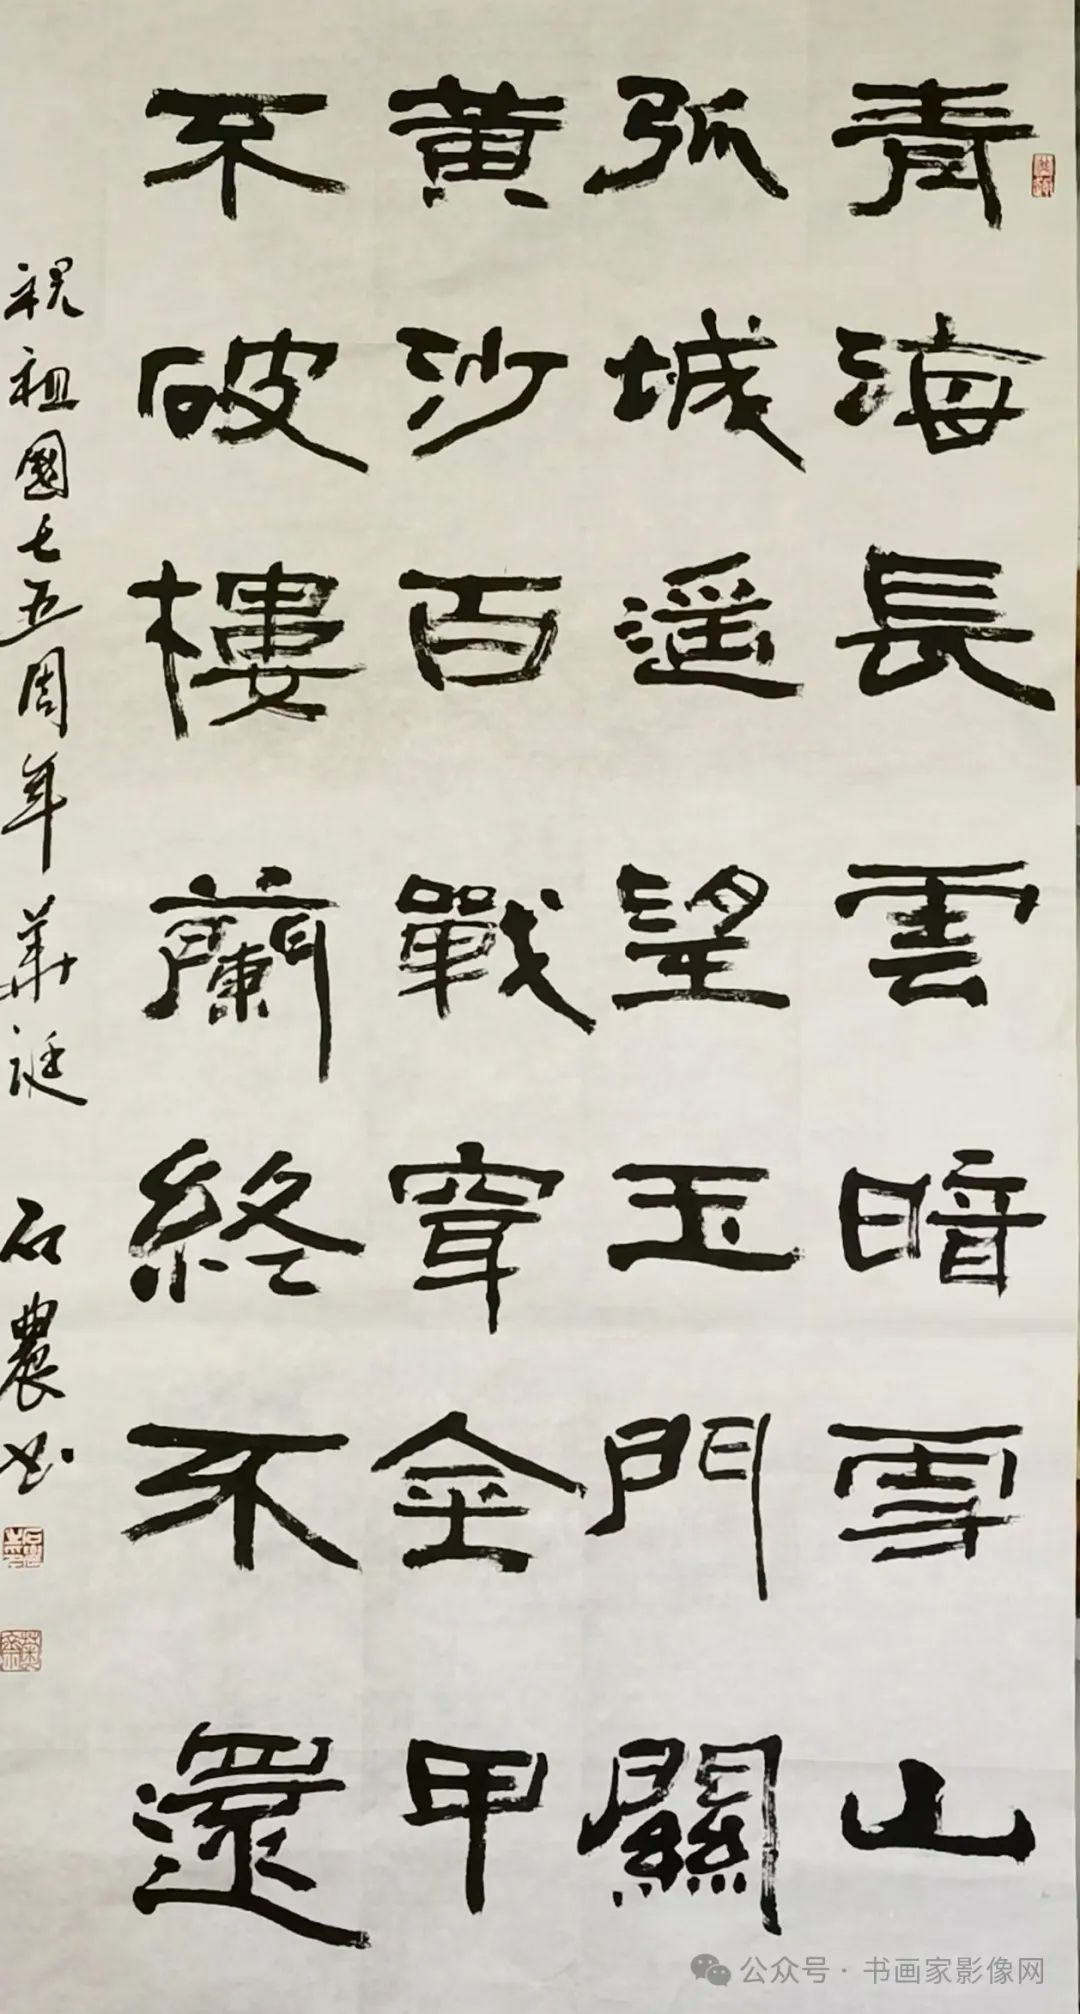 青海長雲暗雪山
弧城遥望玉門關
黄沙百戰穿金甲
不破樓蘭終不還
祝祖國七五周年華誕 石農书
公众号 · 书画家影像网